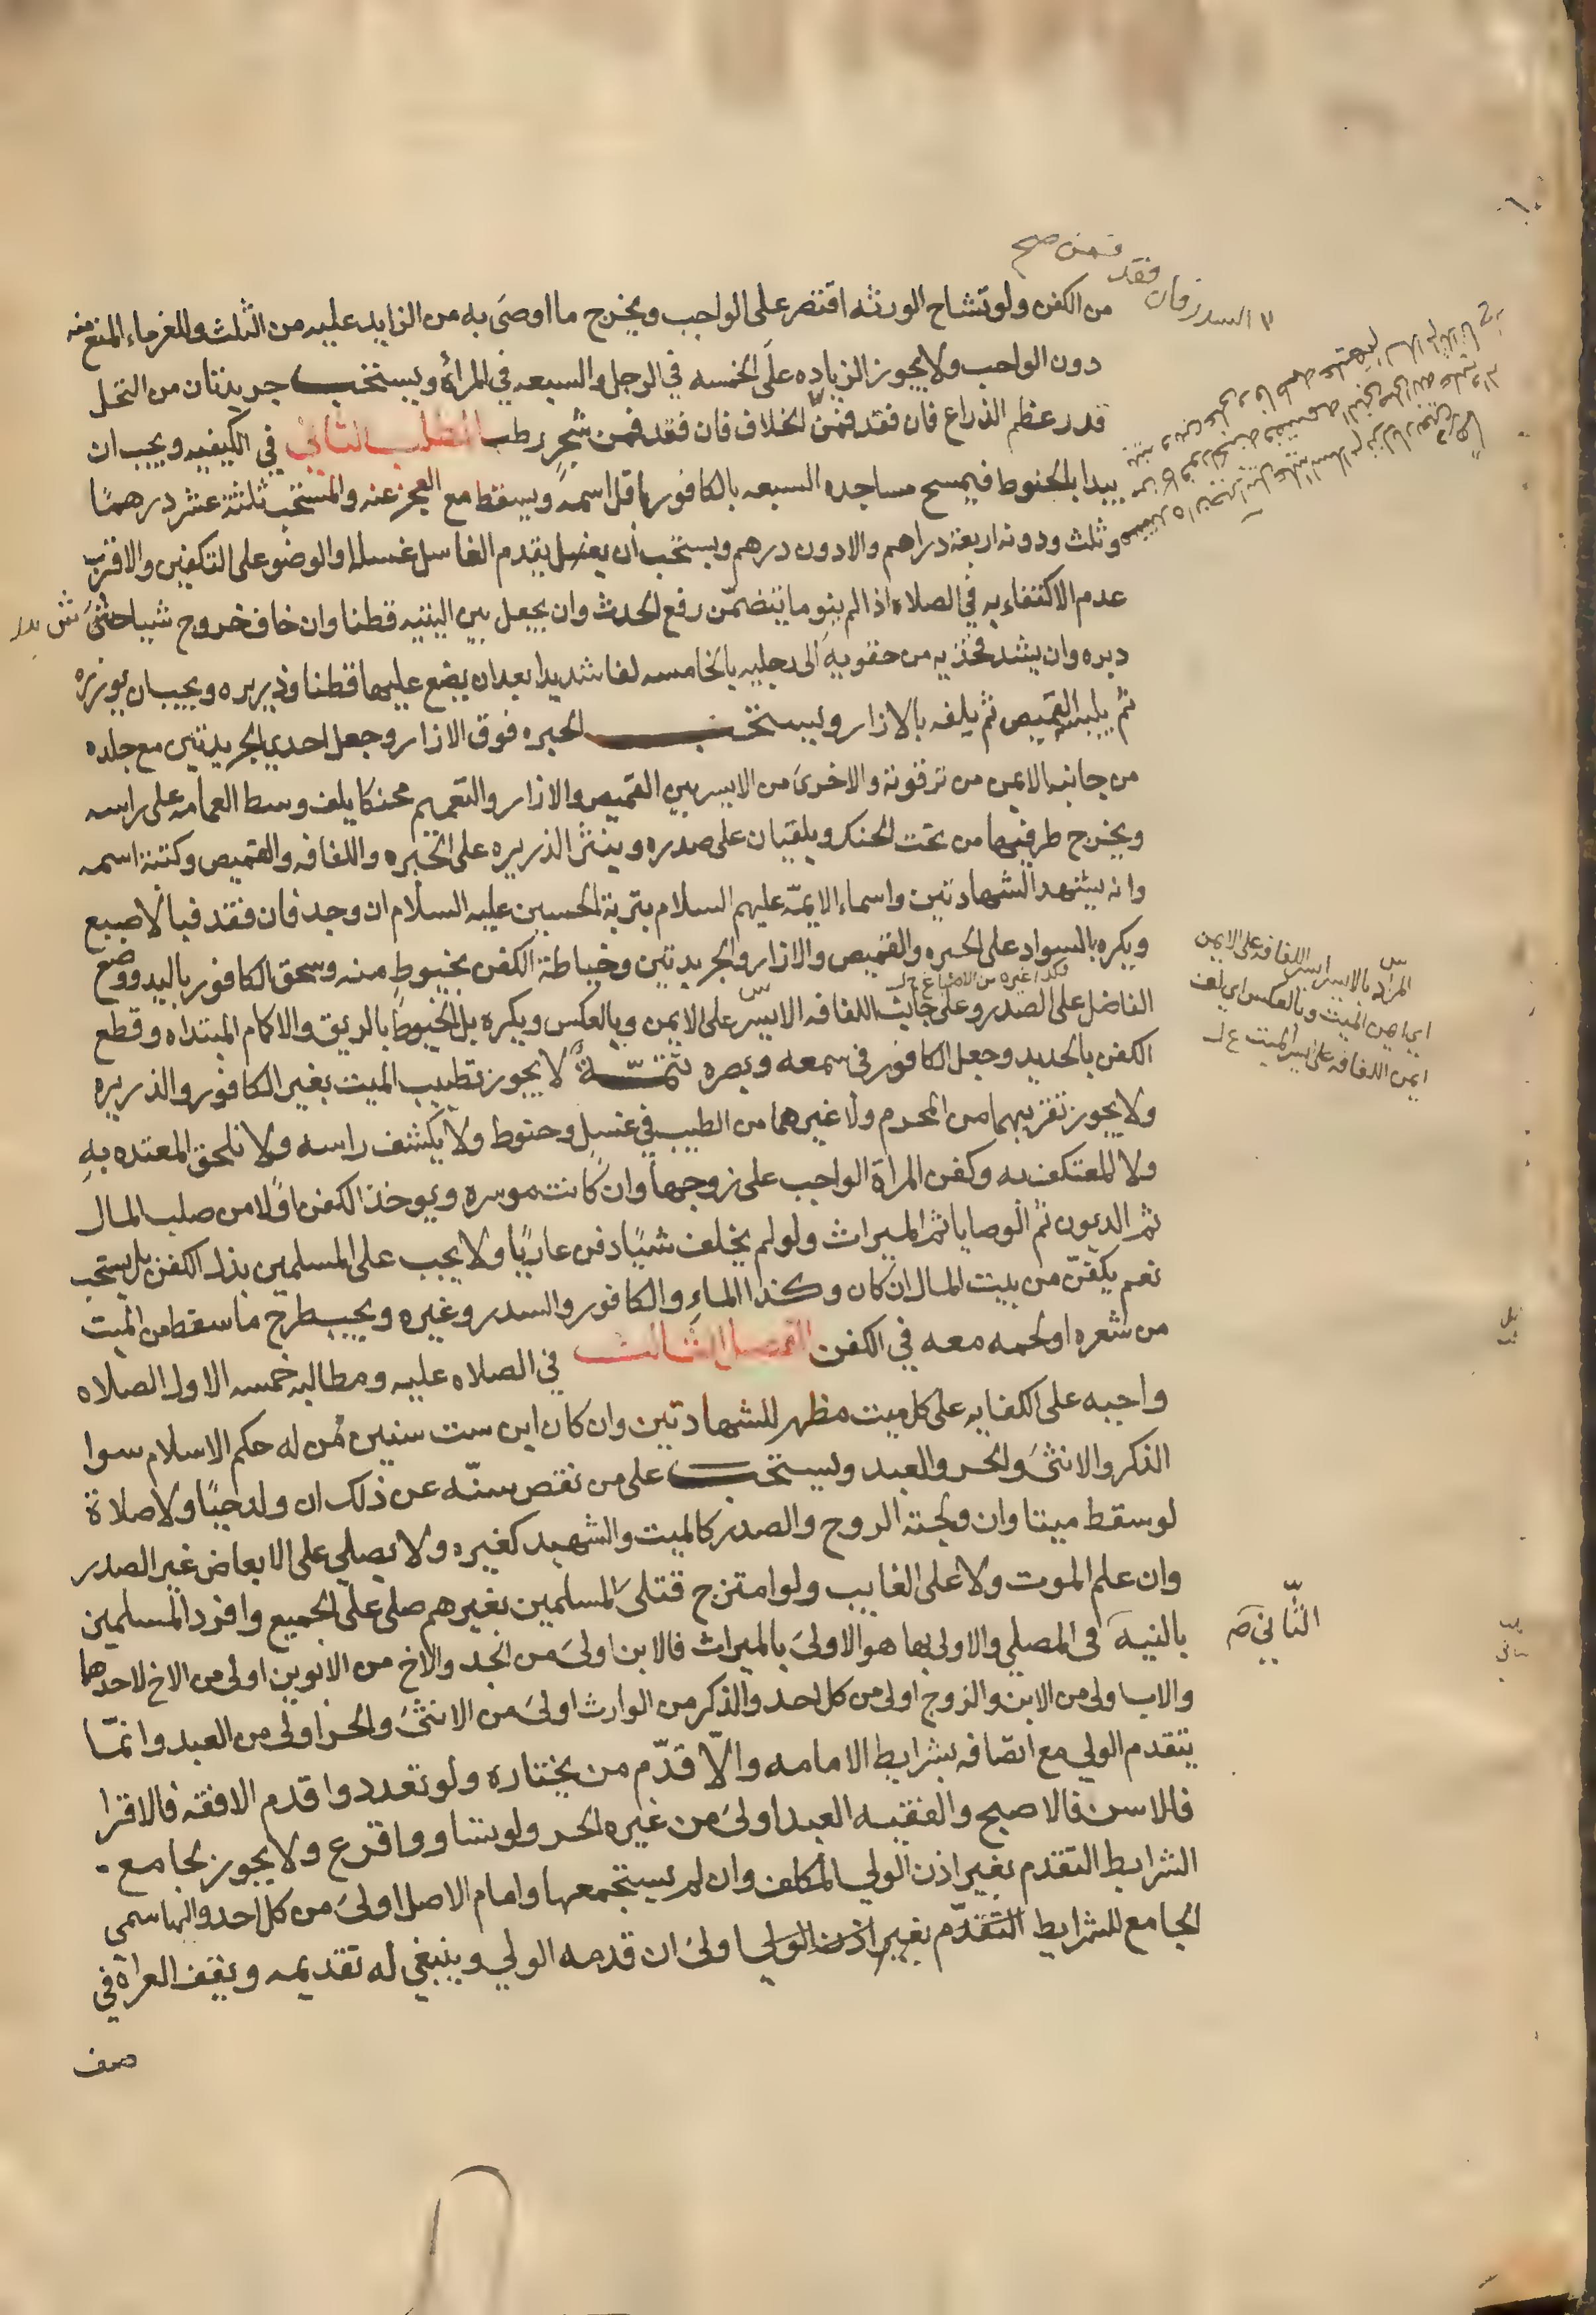 من الكفن ولو تشاح الورثه اقتصر على الواجب ويخرج ما اوصى به من الزايد عليه من الثلث وللغرماء المنع منه
دون الواجب ولا يجوز الزياده على الخمسه في الرجل والسبعه في المرأة ويستحب جريدتان من النخل
قدر عظم الذراع فان فقد فمن الخلاف فان فقد فمن شجر رطب المطلب الثاني في الكيفيه ويجب ان
يبدا بالحنوط فيمسح مساجده السبعه بالكافور باقل اسمه ويسقط مع العجز عنه والمستحب ثلثة عشر درهما
وثلث ودونه اربعة دراهم والادون درهم ويستحب ان يقدم الغاسل غسله او الوضو على التكفين والاقرب
عدم الاكتفاء به في الصلاة اذا لم ينو ما يتضمن رفع الحدث وان يجعل بين اليتيه قطنا وان خاف خروج شييا حشى
دبره وان يشد فخذيه من حقويه الى رجليه بالخامسه لفا شديدا بعد ان يضع عليها قطنا وذريره ويجب ان يوزره
ثم يلبسه القميص ثم يلفه بالازار ويستحب الحبره فوق الازار وجعل احدي الجريدتين مع جلده
من جانبه الايمن من ترقوته والاخرى من الايسر بين القميص والازار والتعميم محنكا يلف وسط العمامه على راسه
ويخرج طرفيها من تحت الحنك ويلقيان على صدره وينثر الذريره على الحبره واللفافه والقميص وكتبة اسمه
وانه يشهد الشهادتين واسماء الايمة عليهم السلام بتربة الحسين عليه السلام ان وجد فان فقد فبالاصبع
ويكره بالسواد على الحبره والقميص والازار والجريدتين وخياطة الكفن بخيوط منه وسحق الكافور باليد ووضع
الفاضل على الصدر وطي جانب اللفافه الايسر على الايمن وبالعكس ويكره بل الخيوط بالريق والاكمام المبتداه وقطع
الكفن بالحديد وجعل الكافور في سمعه وبصره تتمة لا يجوز تطييب الميت بغير الكافور والذريره
ولا يجوز تقريبهما من المحرم ولا غيرهما من الطيب في غسل وحنوط ولا يكشف راسه ولا تلحق المعتده به
ولا المعتكف به وكفن المراة الواجب على زوجها وان كانت موسره ويوخذ الكفن اولا من صلب المال
ثم الديون ثم الوصايا ثم الميراث ولو لم يخلف شيًا دفن عاريًا ولا يجب على المسلمين بذل الكفن بل يستحب
نعم يكفن من بيت المال ان كان وكذا الماء والكافور والسدر وغيره ويجب طرح ما سقط من الميت
من شعره او لحمه معه في الكفن الفصل الثالث في الصلاه عليه ومطالبه خمسه الاول الصلاه
واجبه على الكفايه على كل ميت مظهر للشهادتين وان كان ابن ست سنين ممن له حكم الاسلام سوا
الذكر والانثى والحر والعبد ويستحب على من نقص سنه عن ذلك ان ولد حيًا ولا صلاة
لو سقط ميتا وان ولجته الروح والصدر كالميت والشهيد كغيره ولا يصلي على الابعاض غير الصدر
وان علم الموت ولا على الغايب ولو امتزج قتلى المسلمين بغيرهم صلى على الجميع وافرد المسلمين
بالنية في المصلي والاولى بها هو الاولى بالميراث فالابن اولى من الجد والاخ من الابوين اولى من الاخ لاحدهما
الثاني
والاب اولى من الابن والزوج اولى من كل احد والذكر من الوارث اولى من الانثى والحر اولى من العبد وانما
يتقدم الولي مع اتصافه بشرايط الامامه والا قدم من يختاره ولو تعددوا قدم الافقه فالاقرا
فالاسن فالاصبح والفقيه العبد اولى من غيره الحر ولو تساووا اقرع ولا يجوز لجامع
الشرايط التقدم بغير اذن الولي المكلف وان لم يستجمعها وامام الاصل اولى من كل احد والهاشمي
الجامع للشرايط التقدم بغير اذن الولي اولى ان قدمه الولي وينبغي له تقديمه ويقف العراة في
صف
المراد بالايسر ايسر اللفافه على الايمن
اي ايمن الميت وبالعكس اي يلف
ايمن اللفافه على ايسر الميت